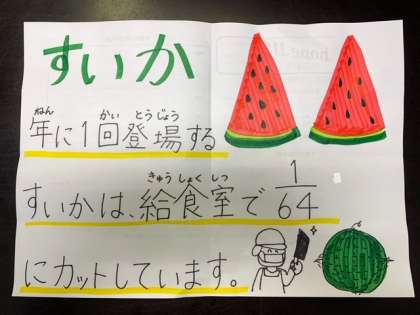 すいか
ねん かい とうじょう
年に1回登場する
きゅうしょくしつ
すいかは、給食室で1/64
にカットしています。